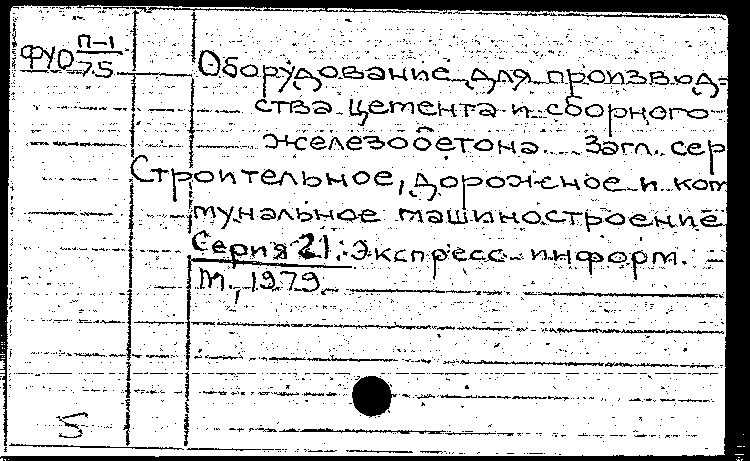 ФУО П-1/75
Оборудование для производ-
ства цемента и сборного
железобетона. Загл. сер
Строительное, дорожное и ком
мунальное машиностроение
Серия 21: Экспресс-информ. -
М., 1979.
5